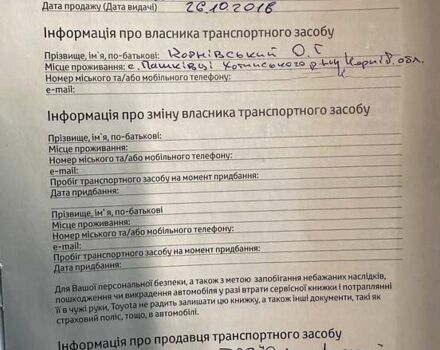 Дата продажу (Дата видачі) 26.10.2018
Інформація про власника транспортного засобу
Прізвище, ім'я, по-батькові: Корнівський О. Г
Місце проживання: с. Пашківці Хотинського р-ну Чернів. обл.
Номер міського та/або мобільного телефону:
e-mail:
Інформація про зміну власника транспортного засобу
Прізвище, ім'я, по-батькові:
Місце проживання:
Номер міського та/або мобільного телефону:
e-mail:
Пробіг транспортного засобу на момент придбання:
Дата придбання:
Прізвище, ім'я, по-батькові
Місце проживання:
Номер міського та/або мобільного телефону:
e-mail:
Пробіг транспортного засобу на момент придбання:
Дата придбання:
Для Вашої персональної безпеки, а також з метою запобігання небажаних наслідків,
пошкодження чи викрадення автомобіля у разі втрати сервісної книжки і потраплянні
її в чужі руки, Toyota не радить залишати цю книжку, а також інші документи, такі як
страховий поліс, тощо, в автомобілі.
Інформація про продавця транспортного засобу